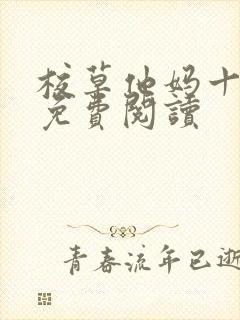 校草他妈十
免費閱讀
青春流年已逝